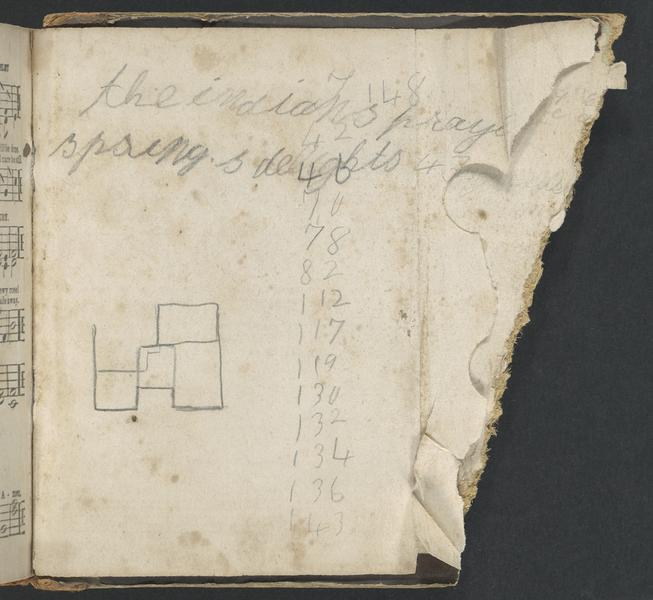 7 148
the indians praye
42
springs deights 43
46
70
78
82
112
117
119
130
132
134
136
143